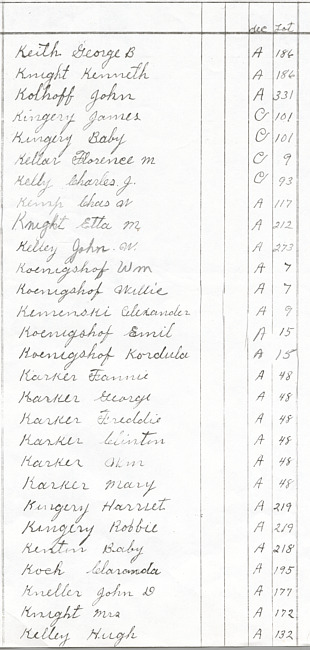 Sec Lot
Keith George B A 186
Knight Kenneth A 186
Kolhoff John A 331
Kingery James C 101
Kingery Baby C 101
Kellar Florence M C 9
Kelly Charles J. C 93
Kemp Chas W A 117
Knight Etta M A 212
Kelley John W. A 273
Koenigshof Wm A 7
Koenigshof Willie A 7
Kemenski Alexander A 9
Koenigshof Emil A 15
Koenigshof Kordula A 15
Karker Fannie A 48
Karker George A 48
Karker Freddie A 48
Karker Clinton A 48
Karker Wm A 48
Karker Mary A 48
Kingery Harriet A 219
Kingery Robbie A 219
Kentin Baby A 218
Koch Claranda A 195
Kneller John D A 177
Knight Mrs A 172
Kelley Hugh A 132